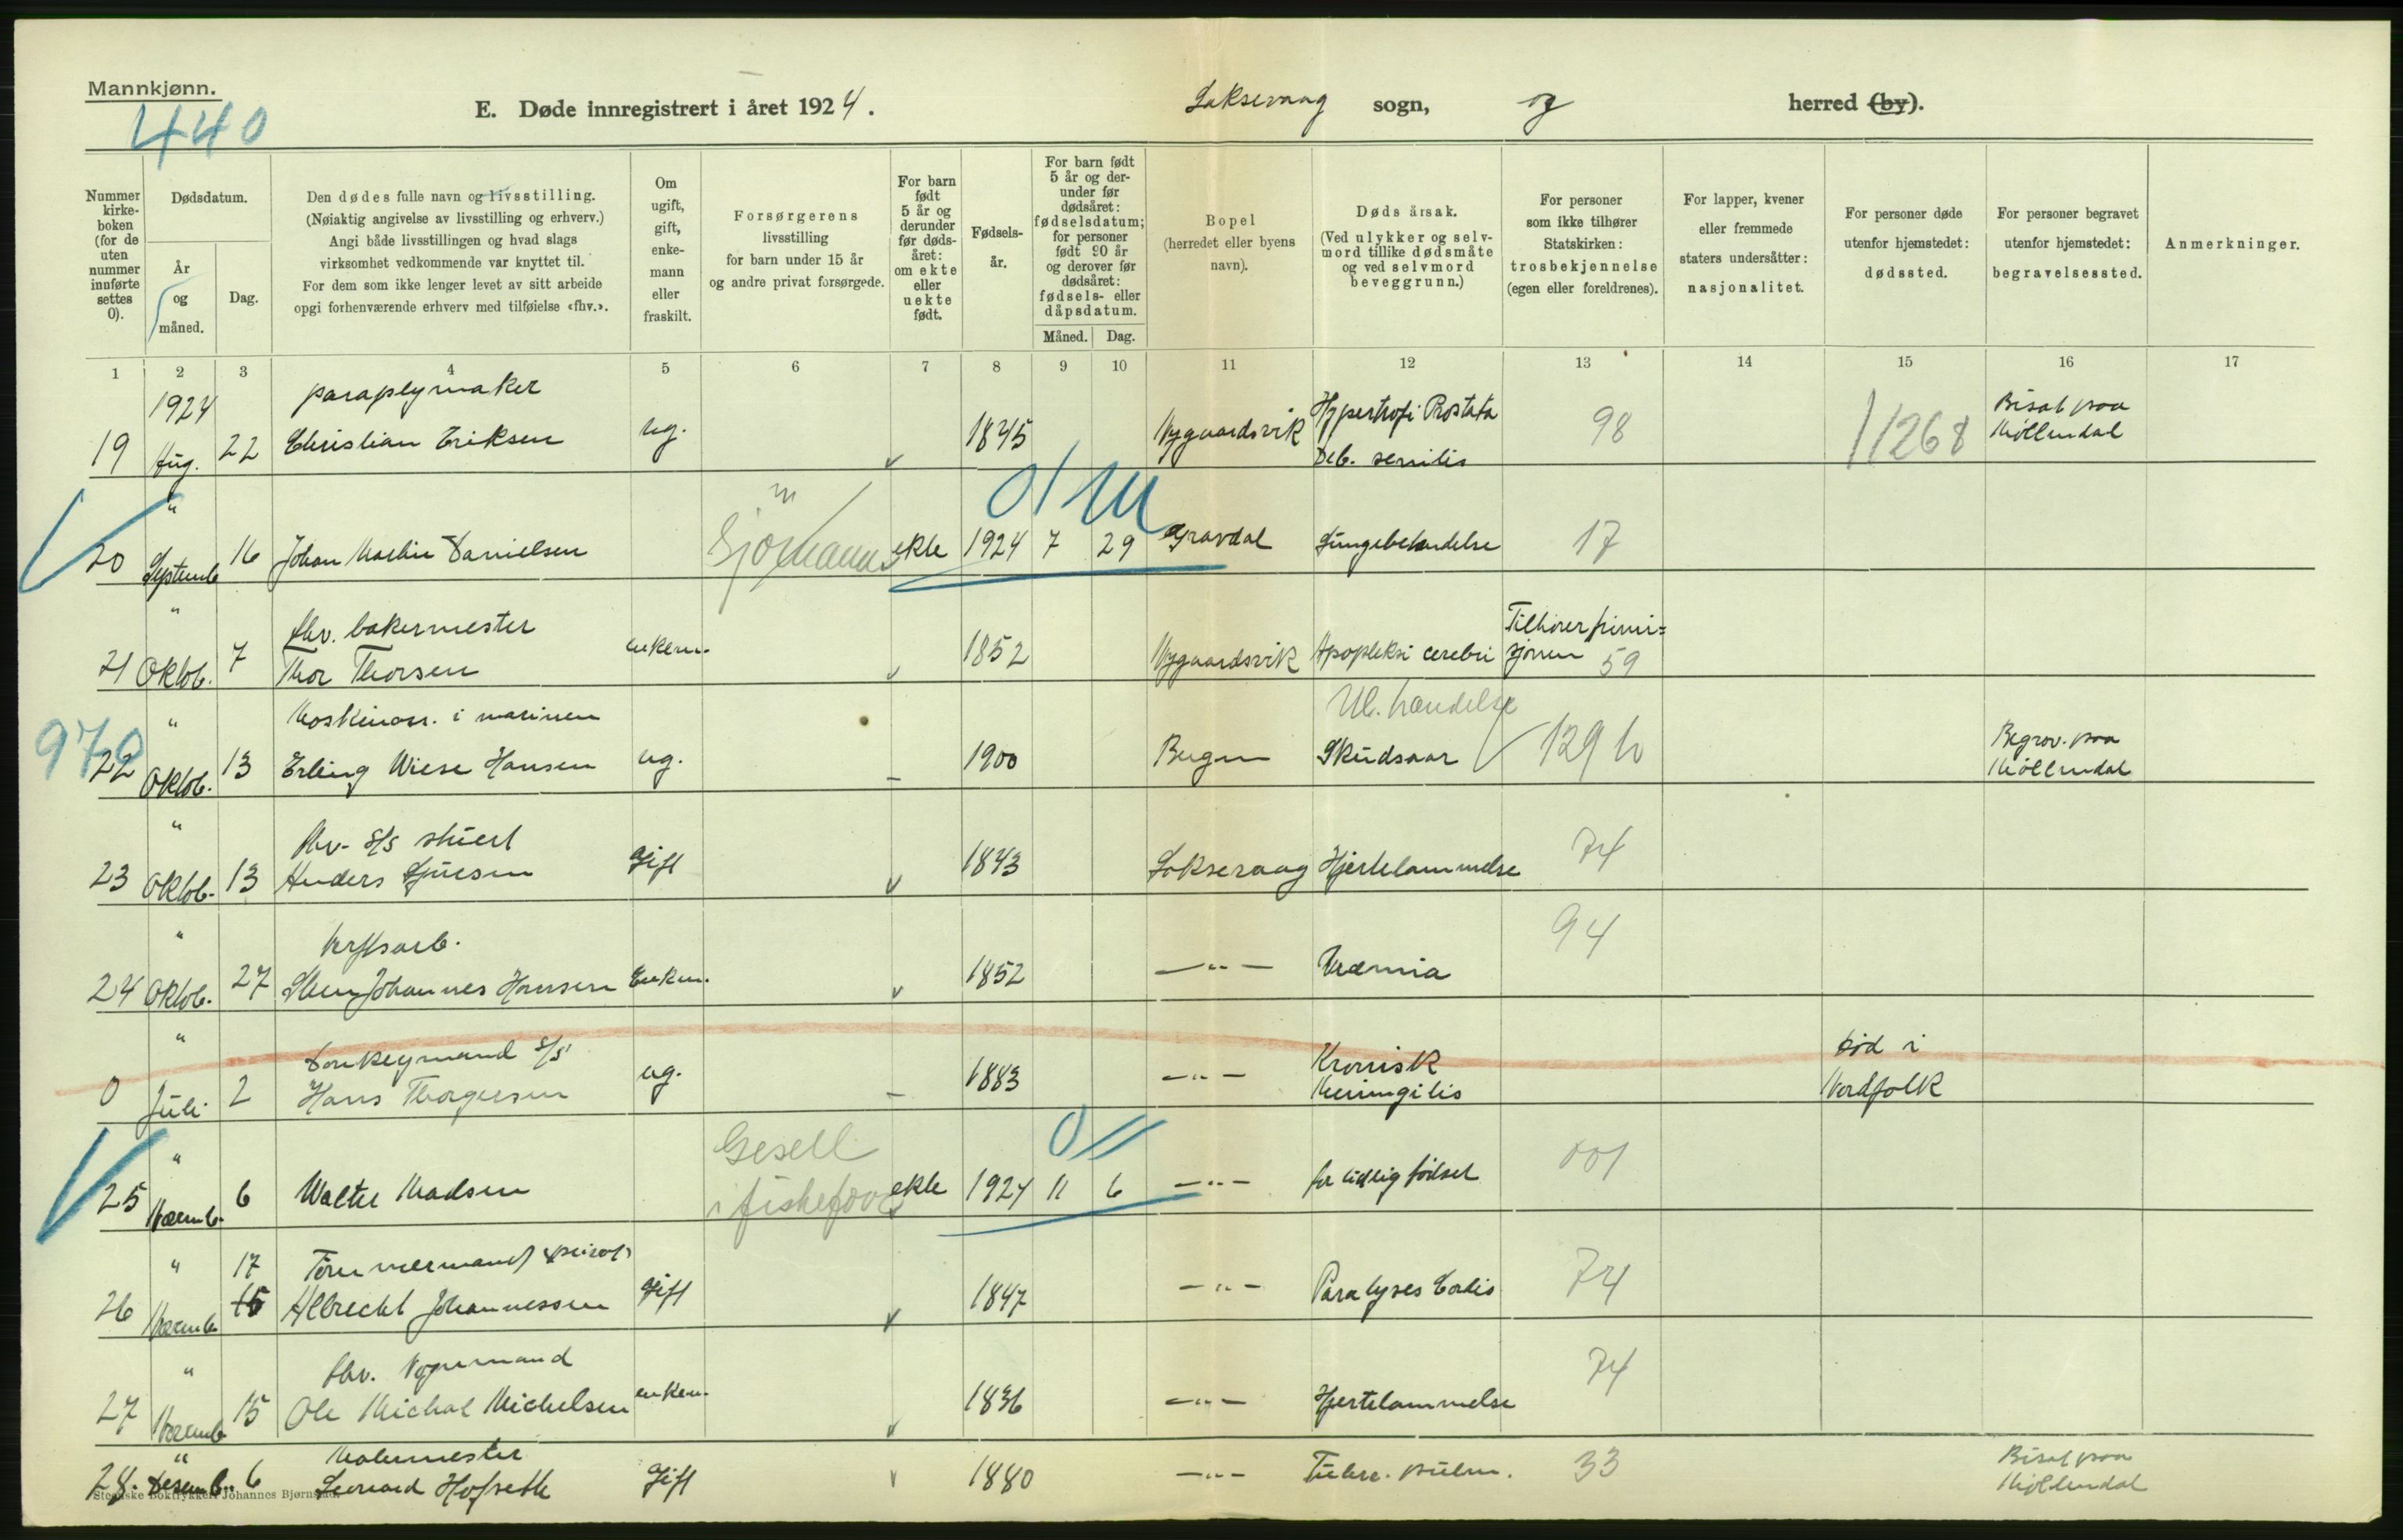 Mannkjønn.
440
E. Døde innregistrert i året 1924.
Laksevaag sogn, og herred (by).
Nummer
kirke-
boken
(for de
uten
nummer
innførte
settes
0).
Dødsdatum.
År
og
måned.
Dag.
Den dødes fulle navn og livsstilling.
(Nøiaktig angivelse av livsstilling og erhverv.)
Angi både livsstillingen og hvad slags
virksomhet vedkommende var knyttet til.
For dem som ikke lenger levet av sitt arbeide
opgi forhenværende erhverv med tilføielse «fhv.».
Om
ugift,
gift,
enke-
mann
eller
fraskilt.
Forsørgerens
livsstilling
for barn under 15 år
og andre privat forsørgede.
For barn
født
5 år og
derunder
før døds-
året:
om ekte
eller
uekte
født.
Fødsels-
år.
For barn født
5 år og der-
under før
dødsåret:
fødselsdatum;
for personer
født 90 år
og derover før
dødsåret:
fødsels- eller
dåpsdatum.
Måned. Dag.
Bopel
(herredet eller byens
navn).
Døds årsak.
(Ved ulykker og selv-
mord tillike dødsmåte
og ved selvmord
beveggrunn.)
For personer
som ikke tilhører
Statskirken:
trosbekjennelse
(egen eller foreldrenes).
For lapper, kvener
eller fremmede
staters undersåtter:
nasjonalitet.
For personer døde
utenfor hjemstedet:
dødssted.
For personer begravet
utenfor hjemstedet:
begravelsessted.
Anmerkninger.
1 2 3 4 5 6 7 8 9 10 11 12 13 14 15 16 17
1924 paraplymaker Hypertrofi Prostata Bisat paa
19 Aug. 22 Christian Eriksen ug. 1845 Nygaardsvik Deb. senilis 98 11268 Møllendal
"
20 Septemb. 16 Johan Martin Danielsen Sjømann ekte 1924 7 29 Gravdal Lungebetendelse 17
" fhv. bakermester Tilhører frimi-
21 Oktob. 7 Thor Thorsen enkem. 1852 Nygaardsvik Apopleksi cerebri sjonen 59
970
" Maskinass. i marinen Ul. hændelse Begrav. paa
22 Oktob. 13 Erling Wiese Hansen ug. 1900 Bergen Skudsaar 129 b Møllendal
" fhv. S/S stuert
23 Oktob. 13 Anders Sjursen Gift 1843 Laksevaag Hjertelammelse 74
" Verftsarb.
24 Oktob. 27 Johannes Hansen Enkem. 1852 —"— Uræmia 94
" Donkeymand S/S Kronisk Død i
0 Juli 2 Hans Thorgersen ug. 1883 —"— Meningitis Nordfolk
" Gesell
25 Novemb. 6 Walter Madsen i fiskeforr ekte 1924 11 6 —"— for tidlig fødsel 001
" 17 Tømmermand (privat)
26 Novemb. 15 Albrecht Johannessen Gift 1847 —"— Paralyses Cordis 74
" fhv. Vognmand
27 Novemb. 15 Ole Michal Michelsen enkem. 1836 —"— Hjertelammelse 74
" Malermester Bisat paa
28. Desemb. 6 Leonard Hofseth Gift 1880 —"— Tuberc. pulm. 33 Møllendal
Stenske Boktrykkeri Johannes Bjørnstad.